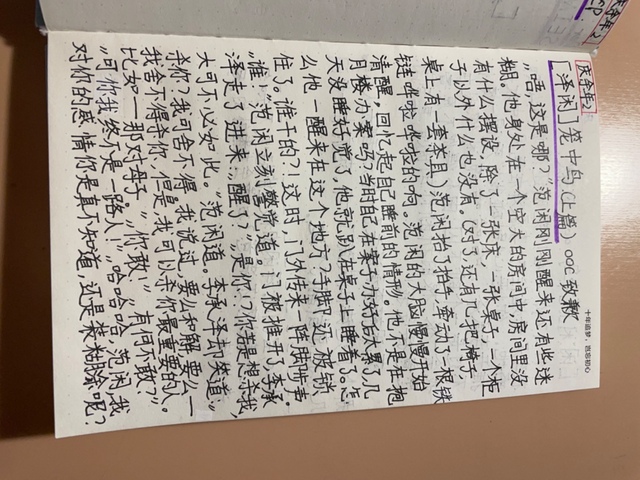 十年追梦，
庆余年
【泽闲】笼中鸟（上篇）ooc致歉
“唔，这是哪？”范闲刚刚醒来还有些迷
糊。他身处在一个空大的房间中，房间里没
有什么摆设，除了一张床，一张桌子，一个柜
子以外什么也没有。（对了还有几把椅子，
桌上有一套茶具）范闲抬了抬手，牵动了一根铁
链哗啦哗啦的响。范闲的大脑慢慢开始
清醒，回忆起自己睡前的情形。他不是在抱
月楼办案吗？当时自己在案子办好后太累，几
天没睡好觉了，他就趴在桌子上睡着了。怎
么他一醒来在这个地方？手脚还被锁
住了。谁干的？！这时，门外传来一阵脚步声
“谁！”范闲立刻警觉道。门被推开了，李承
泽走了进来，“醒了？”“是你！？你若是想杀我，
大可不必如此。”范闲道。李承泽却笑道：“
杀你？我可舍不得，我说过，要么和解，要么一
我舍不得杀你，但是我可以杀你最重要的人。
比如——那对母子。”“你敢！”“有何不敢？”
“可你我终不是一路人！”“哈哈哈，范闲，我
对你的感情你是真不知道，还是装糊涂呢？